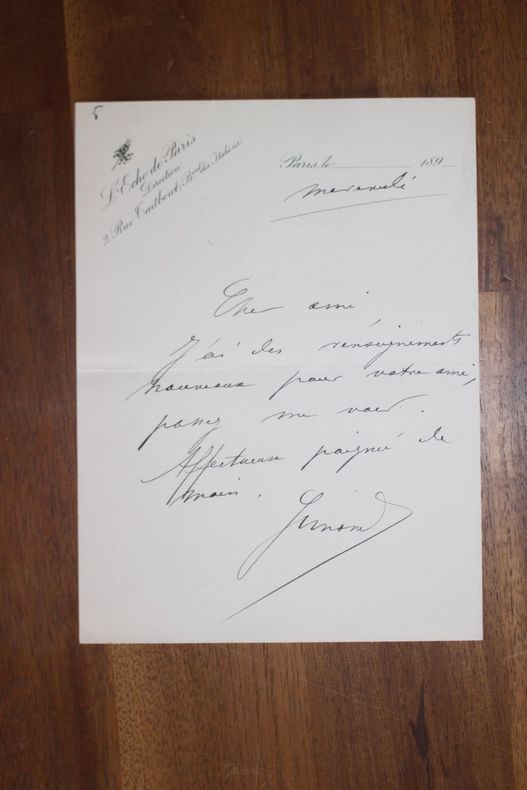 L'Echo de Paris
Direction
2, Rue Taitbout, B.ard des Italiens
Paris, le 189
mercredi
Cher ami
J'ai des renseignements
nouveaux pour votre ami,
passez me voir.
Affectueuse poignée de
main.